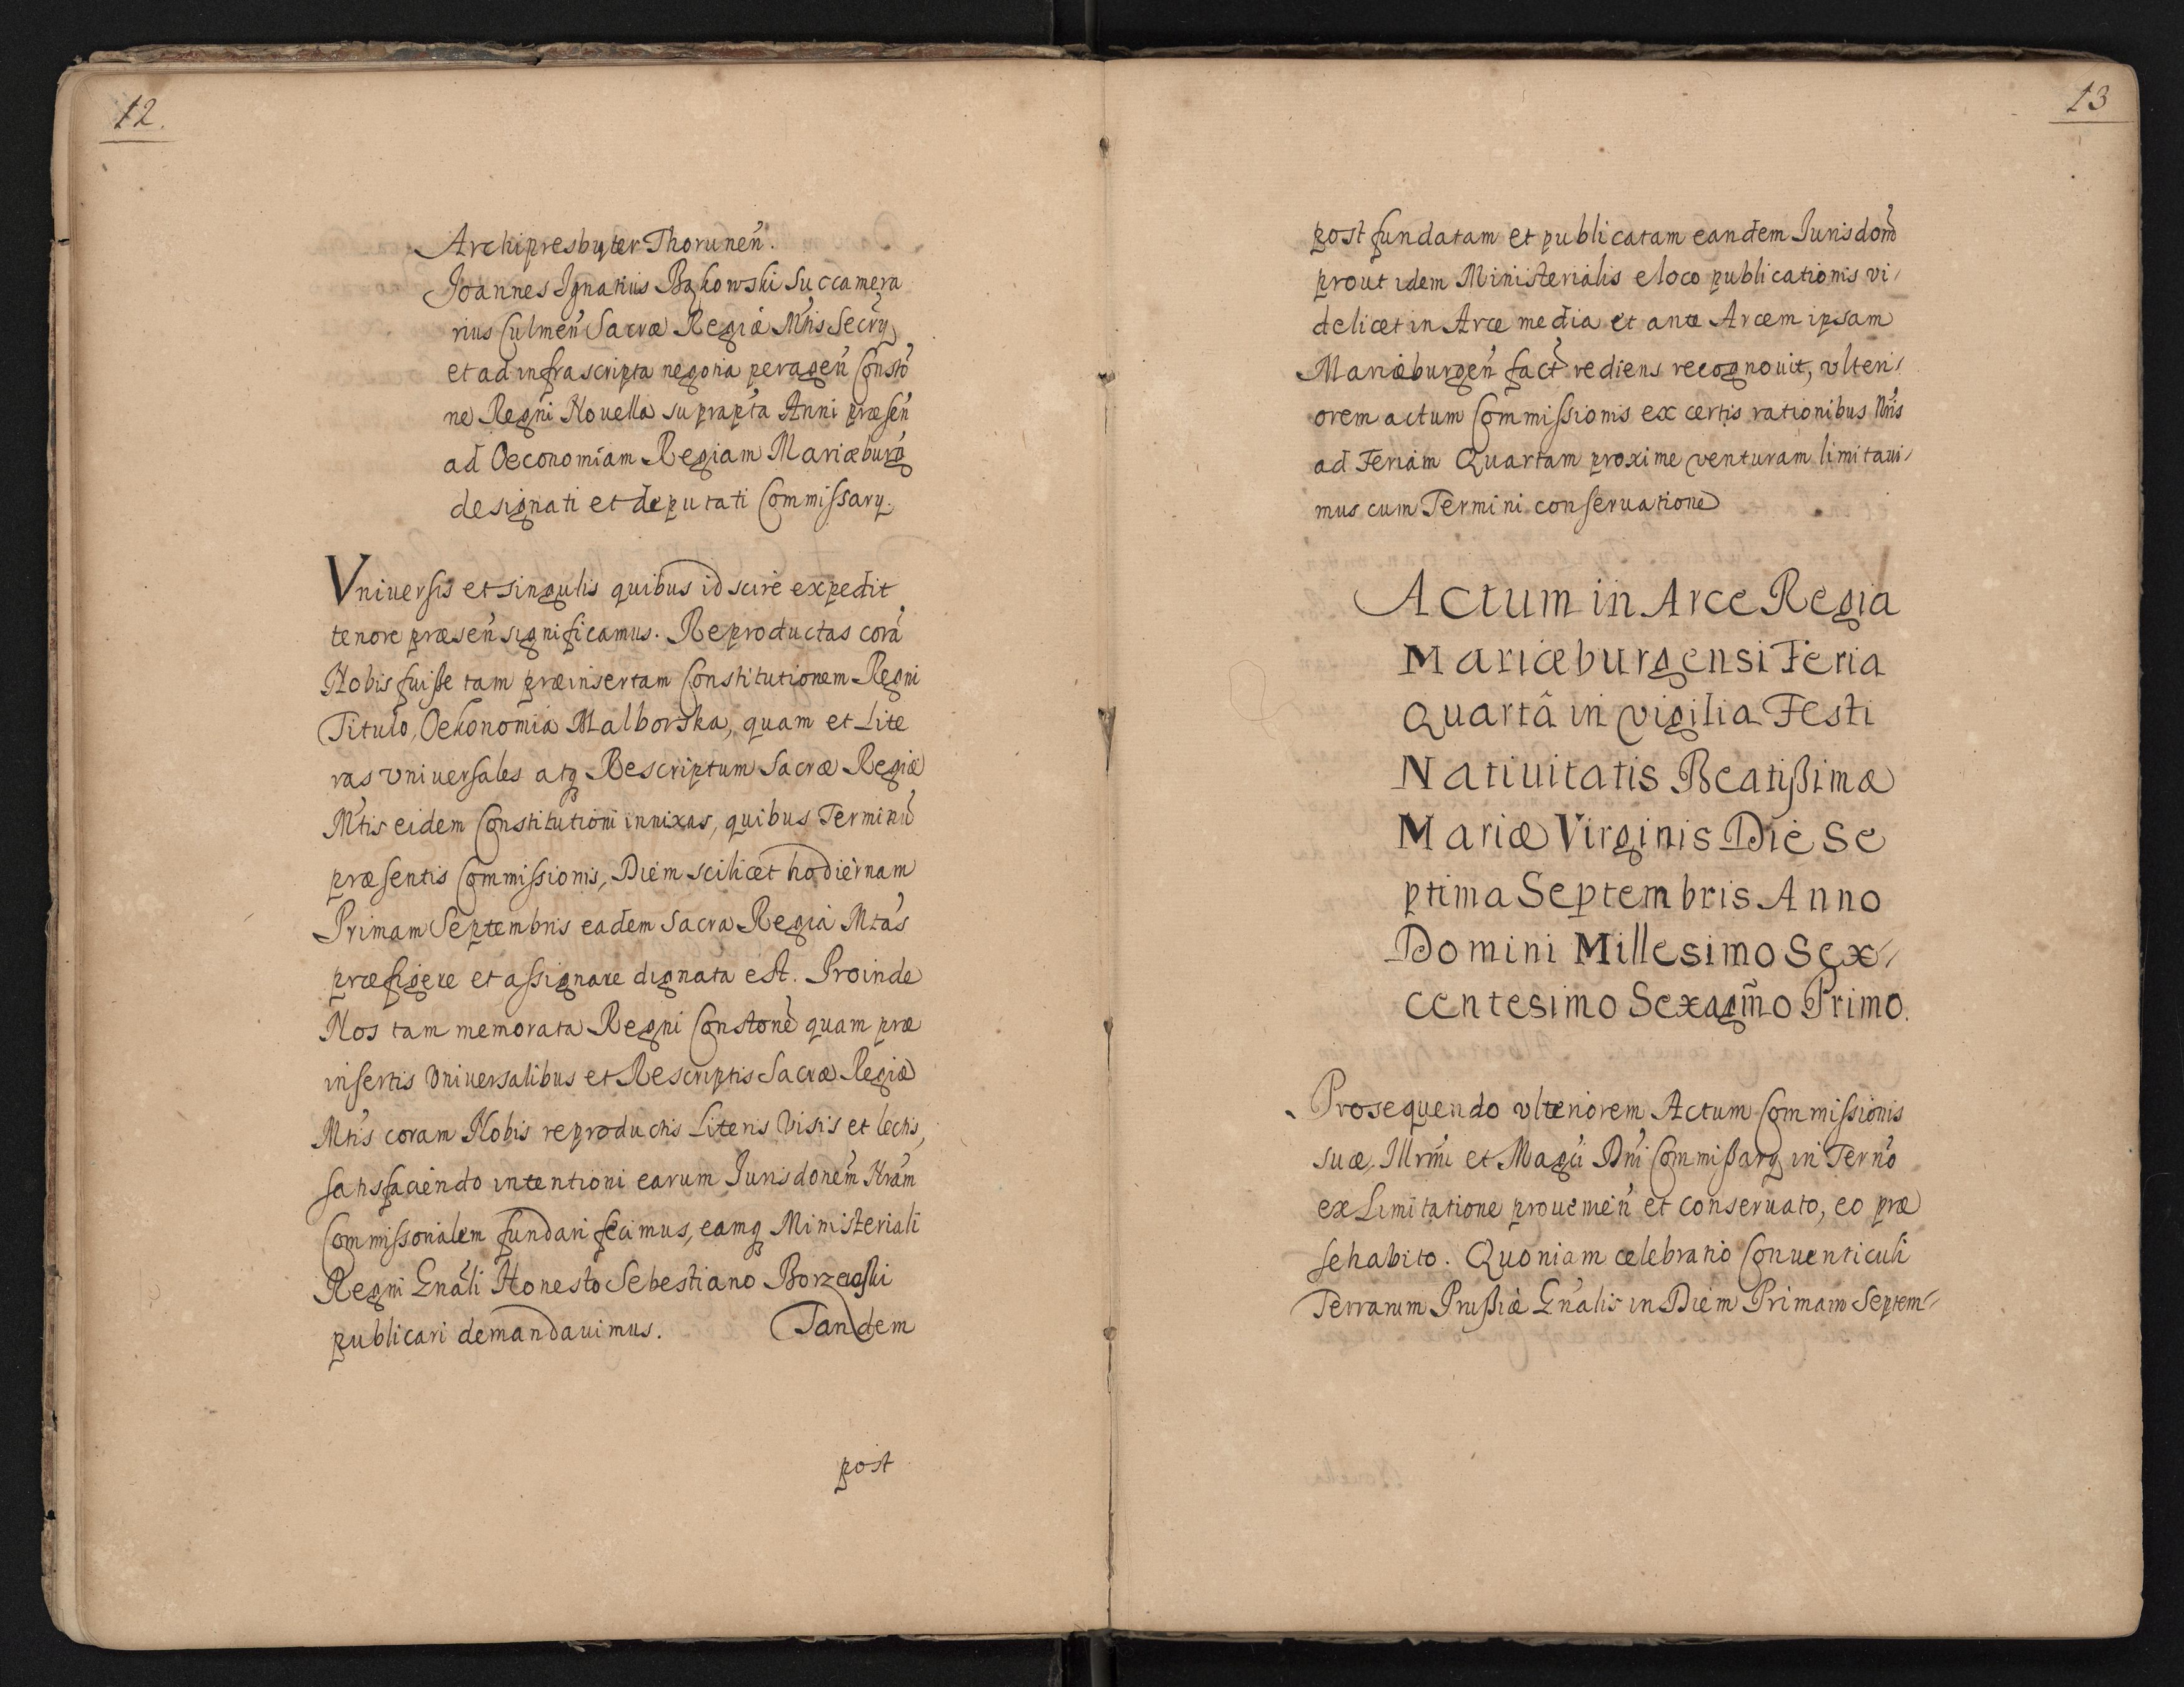 12.
Archipresbyter Thorunen̄.
Joannes Ignatius Bąkowski Succamera
rius Culmen̄ Sacræ Regiæ Mtis Secrȳ
et ad infrascripta negotia peragen̄ Consto
ne Regni Nouella suprapta Anni præsen̄
ad Oeconomiam Regiam Mariæburg
designati et deputati Commissarij.
Vniuersis et singulis quibus id scire expedit
tenore præsen̄ significamus. Reproductas corā
Nobis fuisse tam præinsertam Constitutionem Regni
Titulo, Oekonomia Malborska, quam et Lite
ras vniuersales atq Rescriptum Sacræ Regiæ
Mtis eidem Constitutioni innixas, quibus Terminū
præsentis Commissionis, Diem scilicet hodiernam
Primam Septembris eadem Sacra Regia Mtas
præfigere et assignare dignata est. Proinde
Nos tam memorata Regni Constone quam præ
insertis Vniuersalibus et Rescriptis Sacræ Regiæ
Mtis coram Nobis reproductis Literis Visis et lectis,
satisfaciendo intentioni earum Jurisdonem Nram
Commissorialem fundari fecimus, eamq Ministeriali
Regni Gnāli Honesto Sebestiano
publicari demandauimus. Tandem
post
13
post fundatam et publicatam eandem Jurisdonē
prout idem Ministerialis e loco publicationis vi/
delicet in Arce media et ante Arcem ipsam
Mariæburgen̄ fact rediens recognouit, vlteri/
orem actum Commissionis ex certis rationibus Nris
ad Feriam Quartam proxime venturam limitaui/
mus cum Termini conseruatione
Actum in Arce Regia
Mariæburgensi Feria
Quartâ in vigilia Festi
Natiuitatis Beatissimæ
Mariæ Virginis Die Se
ptima Septembris Anno
Domini Millesimo Sex//
centesimo Sexagm̄o Primo.
Prosequendo vlteriorem Actum Commissionis
suæ, Illrmi et Magci Dni Commissarij in Terno
ex Limitatione prouenien̄ et conseruato, eo præ
se habito. Quoniam celebratio Conuenticuli
Terrarum Prussiæ Gnālis in Diem Primam Septem//